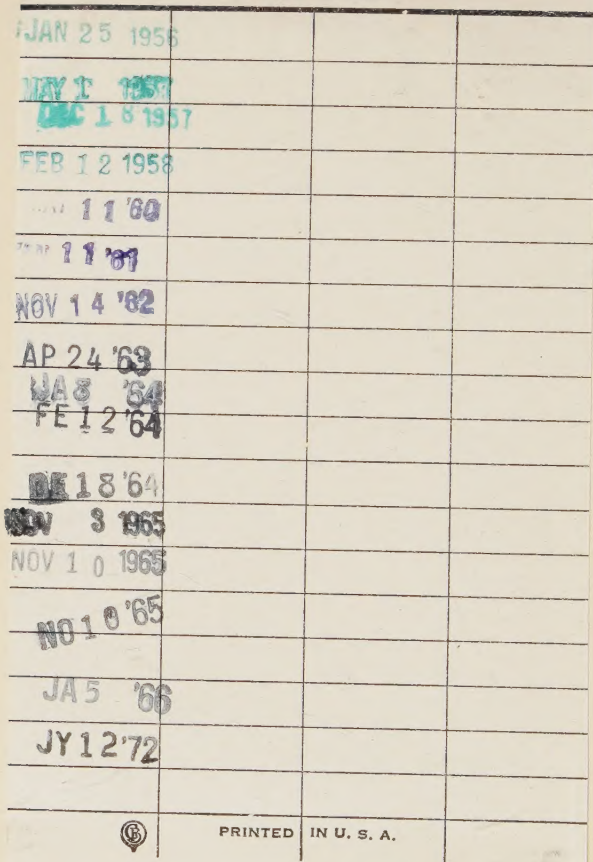 JAN 25 1956
MAY 1 1957
DEC 18 1957
FEB 12 1958
11 '60
11 '61
NOV 14 '62
AP 24 '63
JA 8 '64
FE 12 '64
DE 18 '64
NOV 3 1965
NOV 10 1965
NO 10 '65
JA 5 '66
JY 12 '72
PRINTED IN U. S. A.